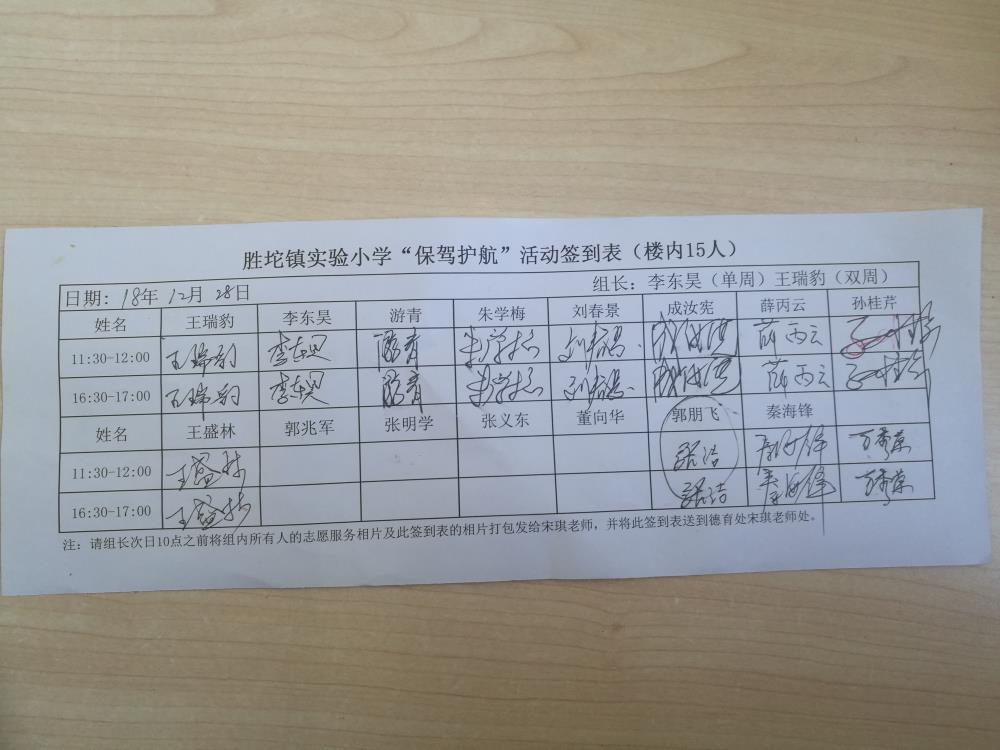 胜坨镇实验小学“保驾护航”活动签到表（楼内15人）
日期：18年 12月 28日 组长：李东昊（单周）王瑞豹（双周）
姓名 王瑞豹 李东昊 游青 朱学梅 刘春景 成汝宪 薛丙云 孙桂芹
11:30-12:00 王瑞豹 李东昊 游青 朱学梅 刘春景 成汝宪 薛丙云 孙桂芹
16:30-17:00 王瑞豹 李东昊 游青 朱学梅 刘春景 成汝宪 薛丙云 孙桂芹
姓名 王盛林 郭兆军 张明学 张义东 董向华 郭朋飞 秦海锋
11:30-12:00 王盛林 张洁 秦海锋
16:30-17:00 王盛林 张洁 秦海锋
注：请组长次日10点之前将组内所有人的志愿服务相片及此签到表的相片打包发给宋琪老师，并将此签到表送到德育处宋琪老师处。